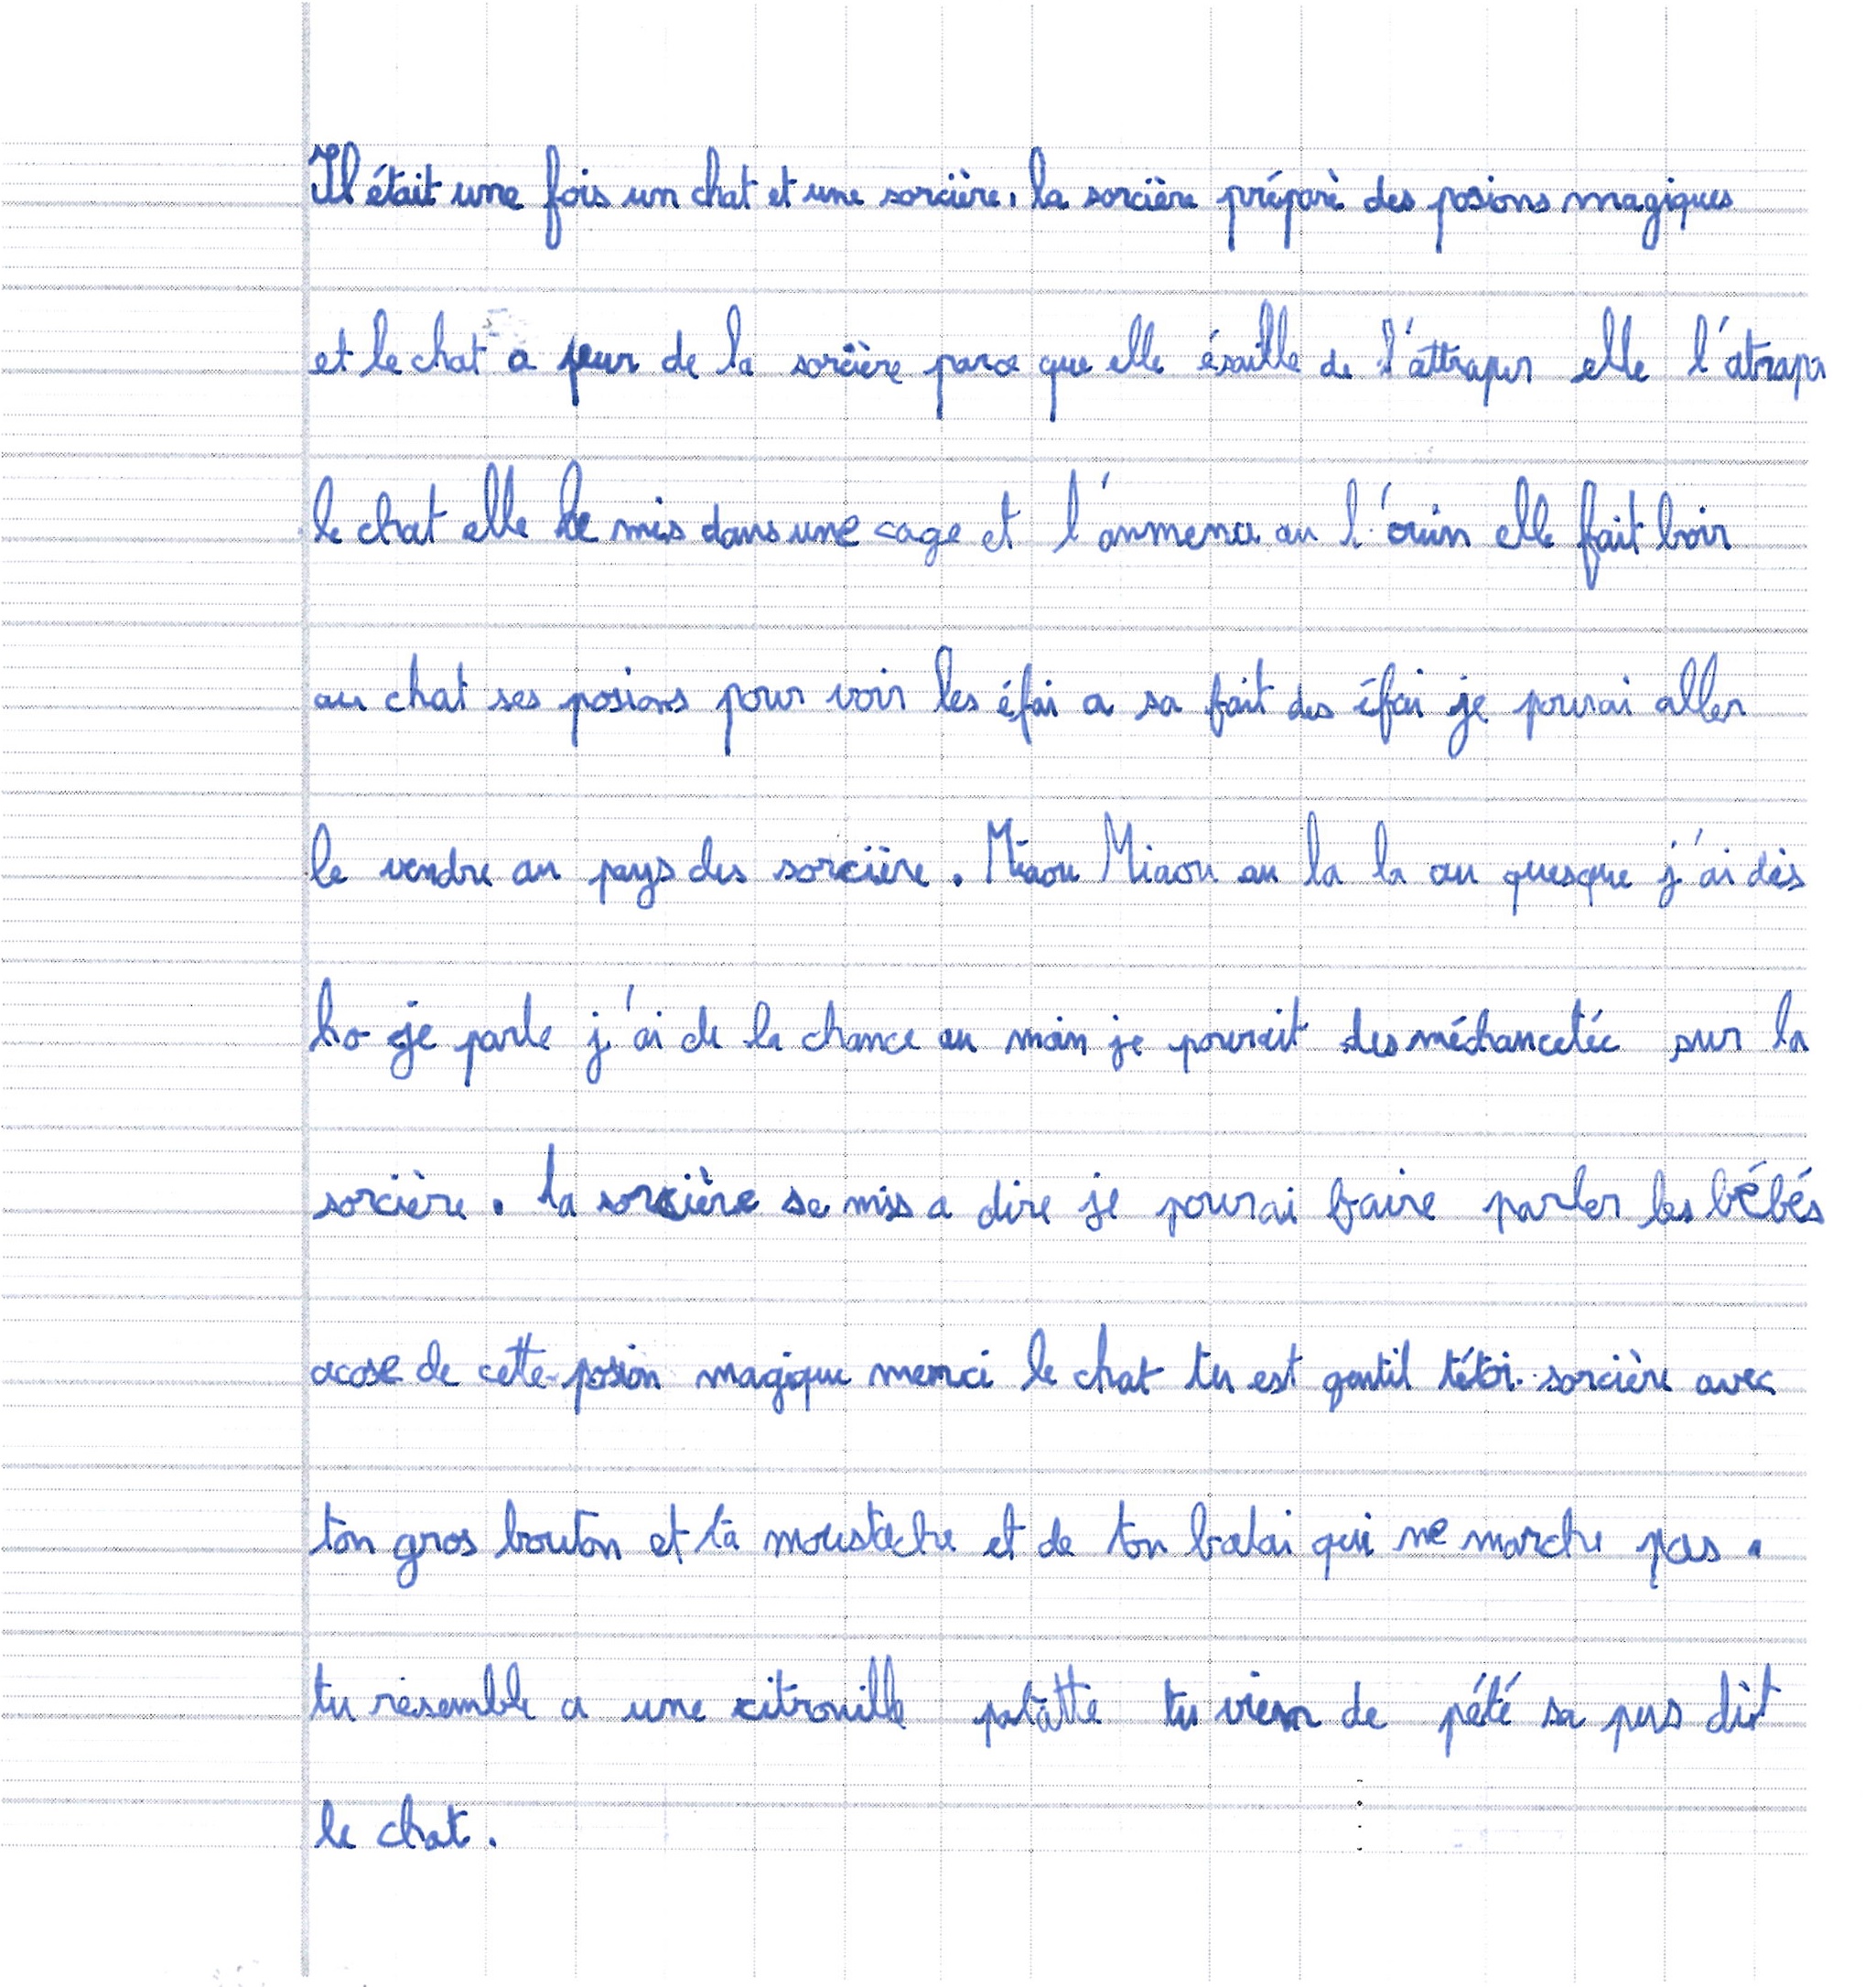 Il était une fois un chat et une sorcière, la sorcière préparè des posions magiques
et le chat a peur de la sorcière parce que elle ésaille de l'attraper elle l'atrapa
le chat elle le mis dans une cage et l'anmena au l'ouin elle fait boir
au chat ses posions pour voir les éfai a sa fait des éfai je pourai aller
le vendre au pays des sorcière. Miaou Miaou au la la au quesque j'ai dés
ho je parle j'ai de la chance au moin je pourait des méchancetée sur la
sorcière. la sorcière se mis a dire je pourai faire parler les bébés
acose de cette posion magique merci le chat tu est gentil tétoi sorcière avec
ton gros bouton et ta moustache et de ton balai qui ne marche pas.
tu résemble a une citrouille patatte tu vien de pété sa pus dit
le chat.